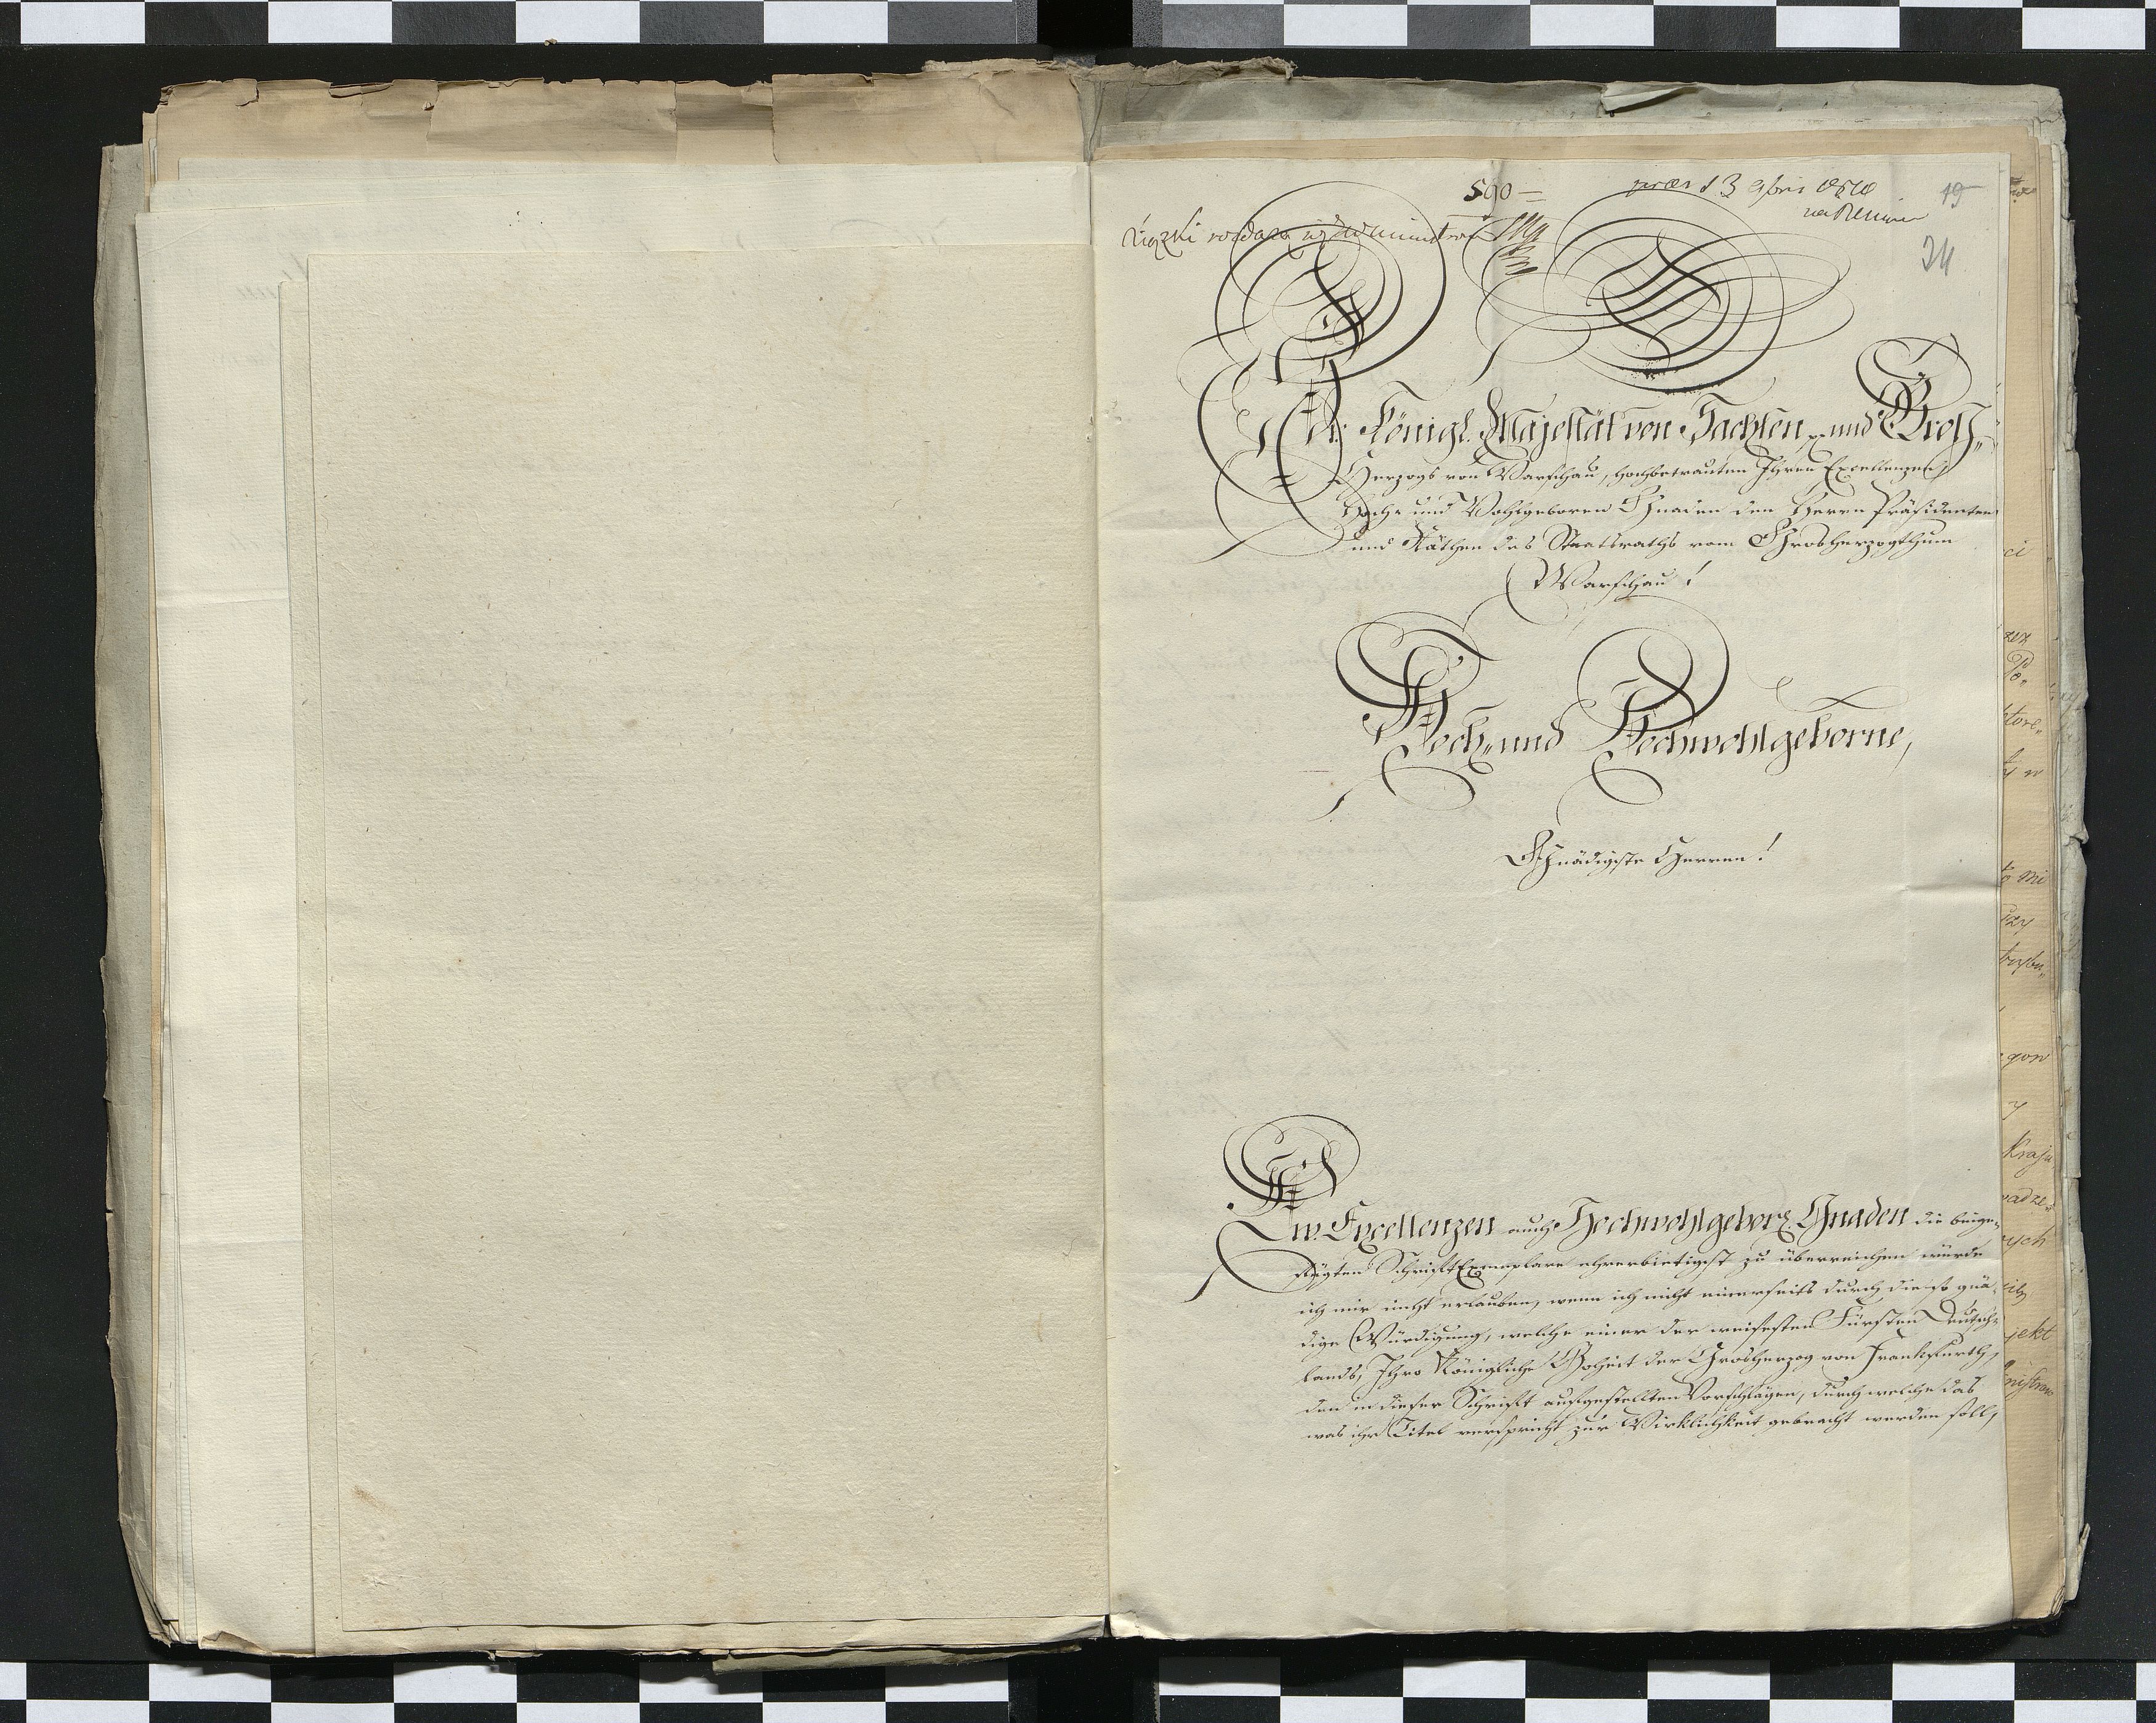 590 =
praes 13 9bris 1810
19
34
Sr. Königl. Majestät von Sachsen, und Groß-
Herzogs von Warschau, hochbetrauten Ihren Excellenzen,
Hoch- und Wohlgeboren Gnaden den Herrn Präsidenten
und Räthen des Staatsraths vom Grosherzogthum
Warschau!
Hoch- und Hochwohlgeborne,
Gnädigste Herren!
Ew. Excellenzen auch Hochwohlgebor. Gnaden die beige-
fügten Schrift Exemplare ehrerbietigst zu überreichen würde
ich mir nicht erlauben, wenn ich nicht einerseits durch die so gnä-
dige Würdigung, welche einer der weisesten Fürsten Deutsch-
lands, Ihro Königliche Hoheit der Grosherzog von Frankfurth,
den in dieser Schrift aufgestellten Vorschlägen, durch welche das
was ihr Titel verspricht zur Wirklichkeit gebracht werden soll,